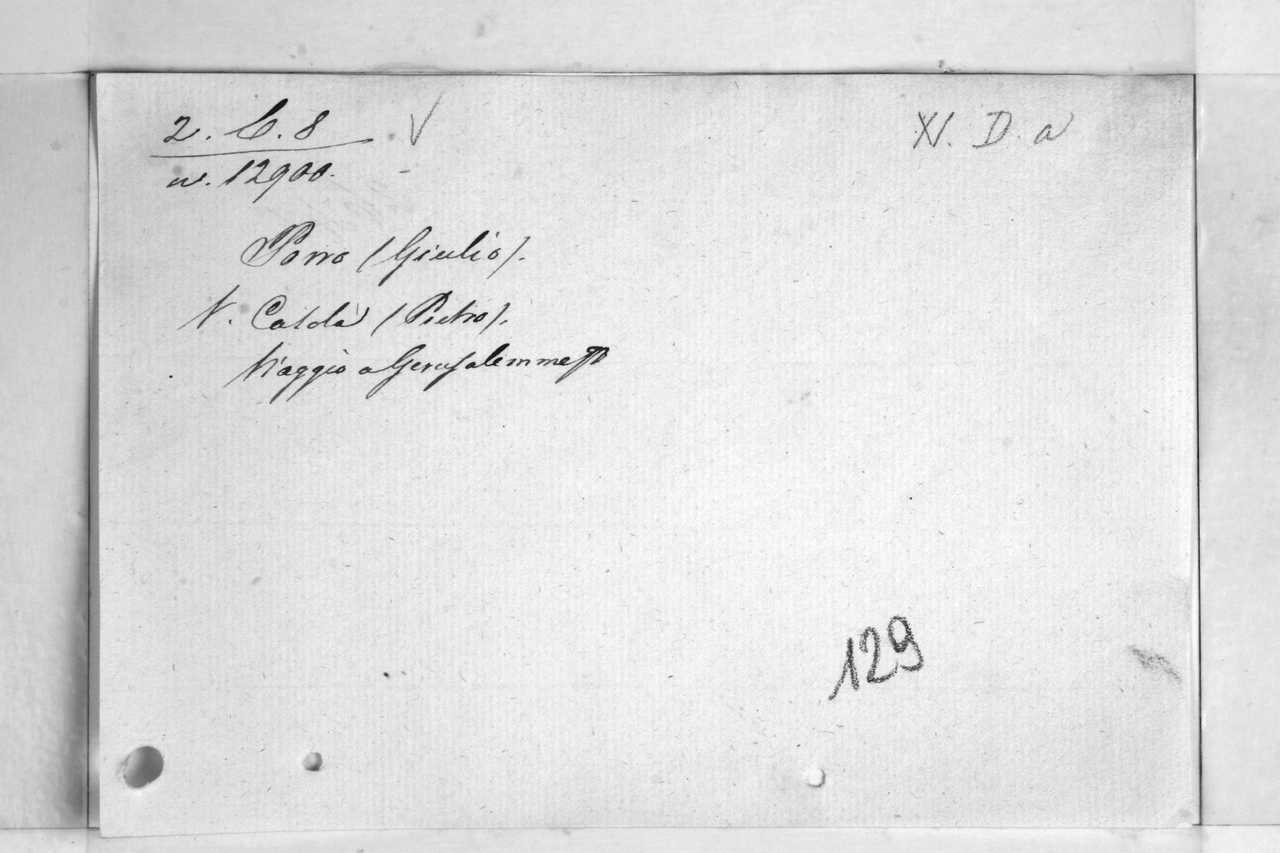 2. C. 8 V
XV. D. a
n. 12900.
Porro (Giulio).
V. Casola (Pietro).
Viaggio a Gerusalemme
129